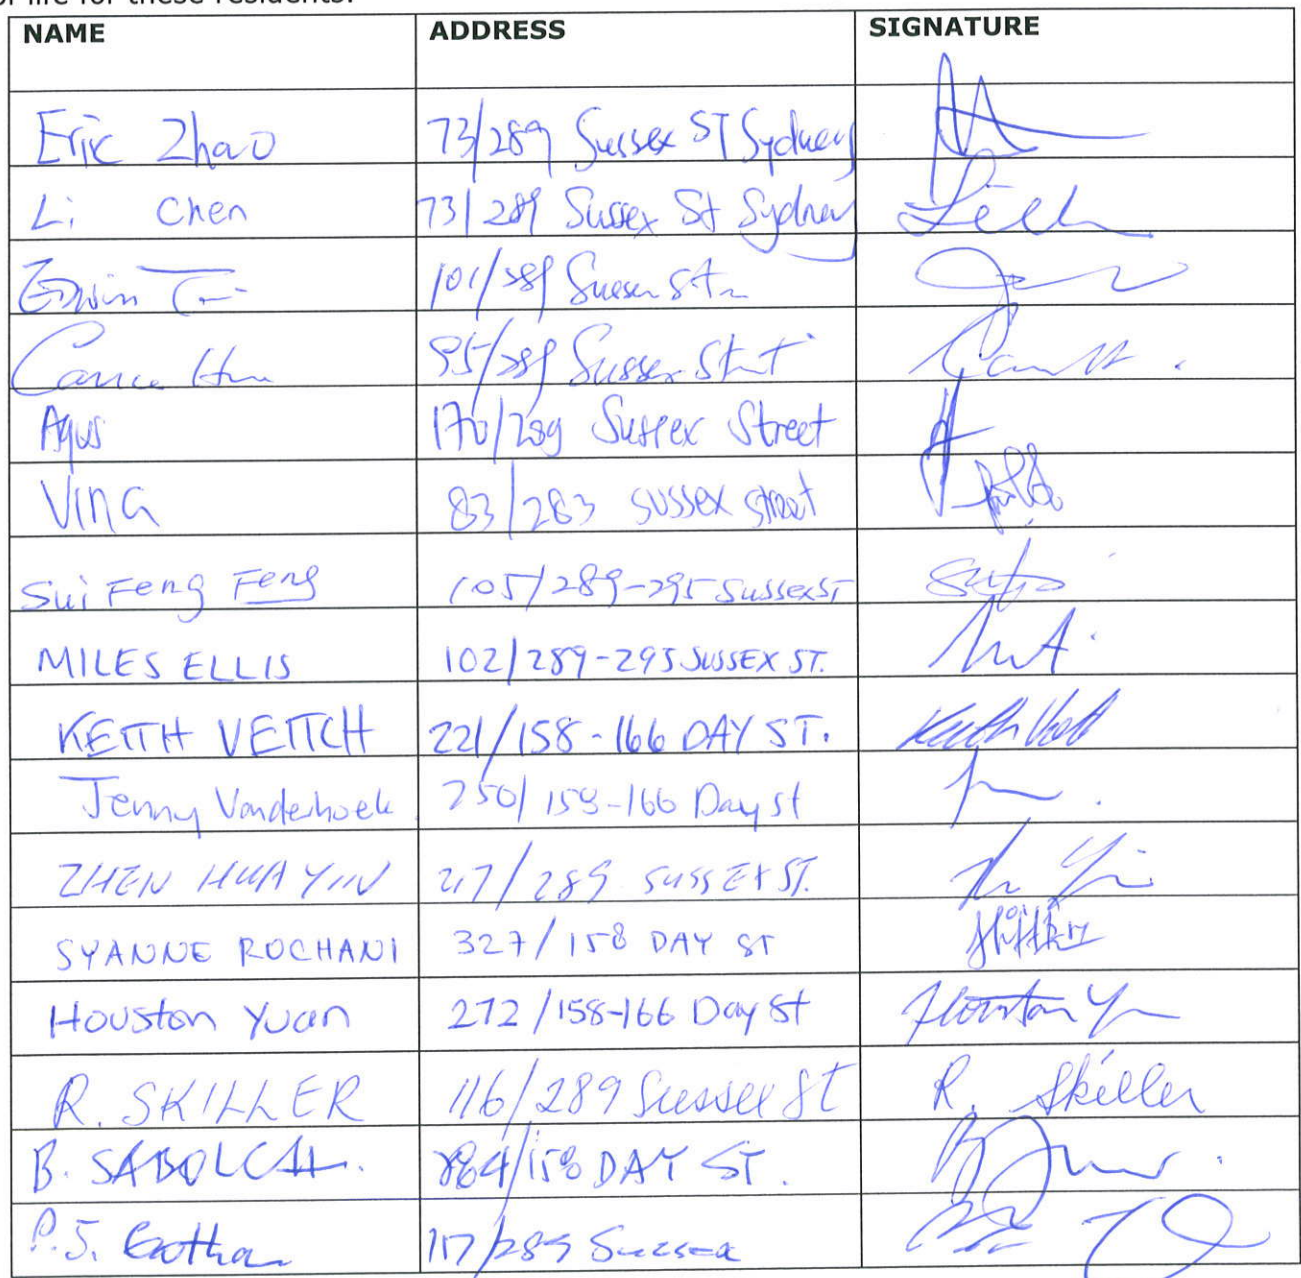 of life for these residents.
NAME ADDRESS SIGNATURE
Eric Zhao 73/289 Sussex ST Sydney
Li Chen 73/289 Sussex St Sydney
Edwin 101/289 Sussex St
95/289 Sussex Street
Agus 170/289 Sussex Street
Vina 83/283 Sussex street
Sui Feng Feng 105/289-295 Sussex ST
MILES ELLIS 102/289-295 SUSSEX ST.
KEITH VEITCH 221/158-166 DAY ST.
Jenny Vanderhoek 250/158-166 Day St
ZHEN HUA YIN 217/289 SUSSEX ST.
SYANNE ROCHANI 327/158 DAY ST
Houston Yuan 272/158-166 Day St Houston Y
R. SKILLER 116/289 Sussex St R. Skiller
B. SABOLCH. /158 DAY ST.
P.J. 117/289 Sussex